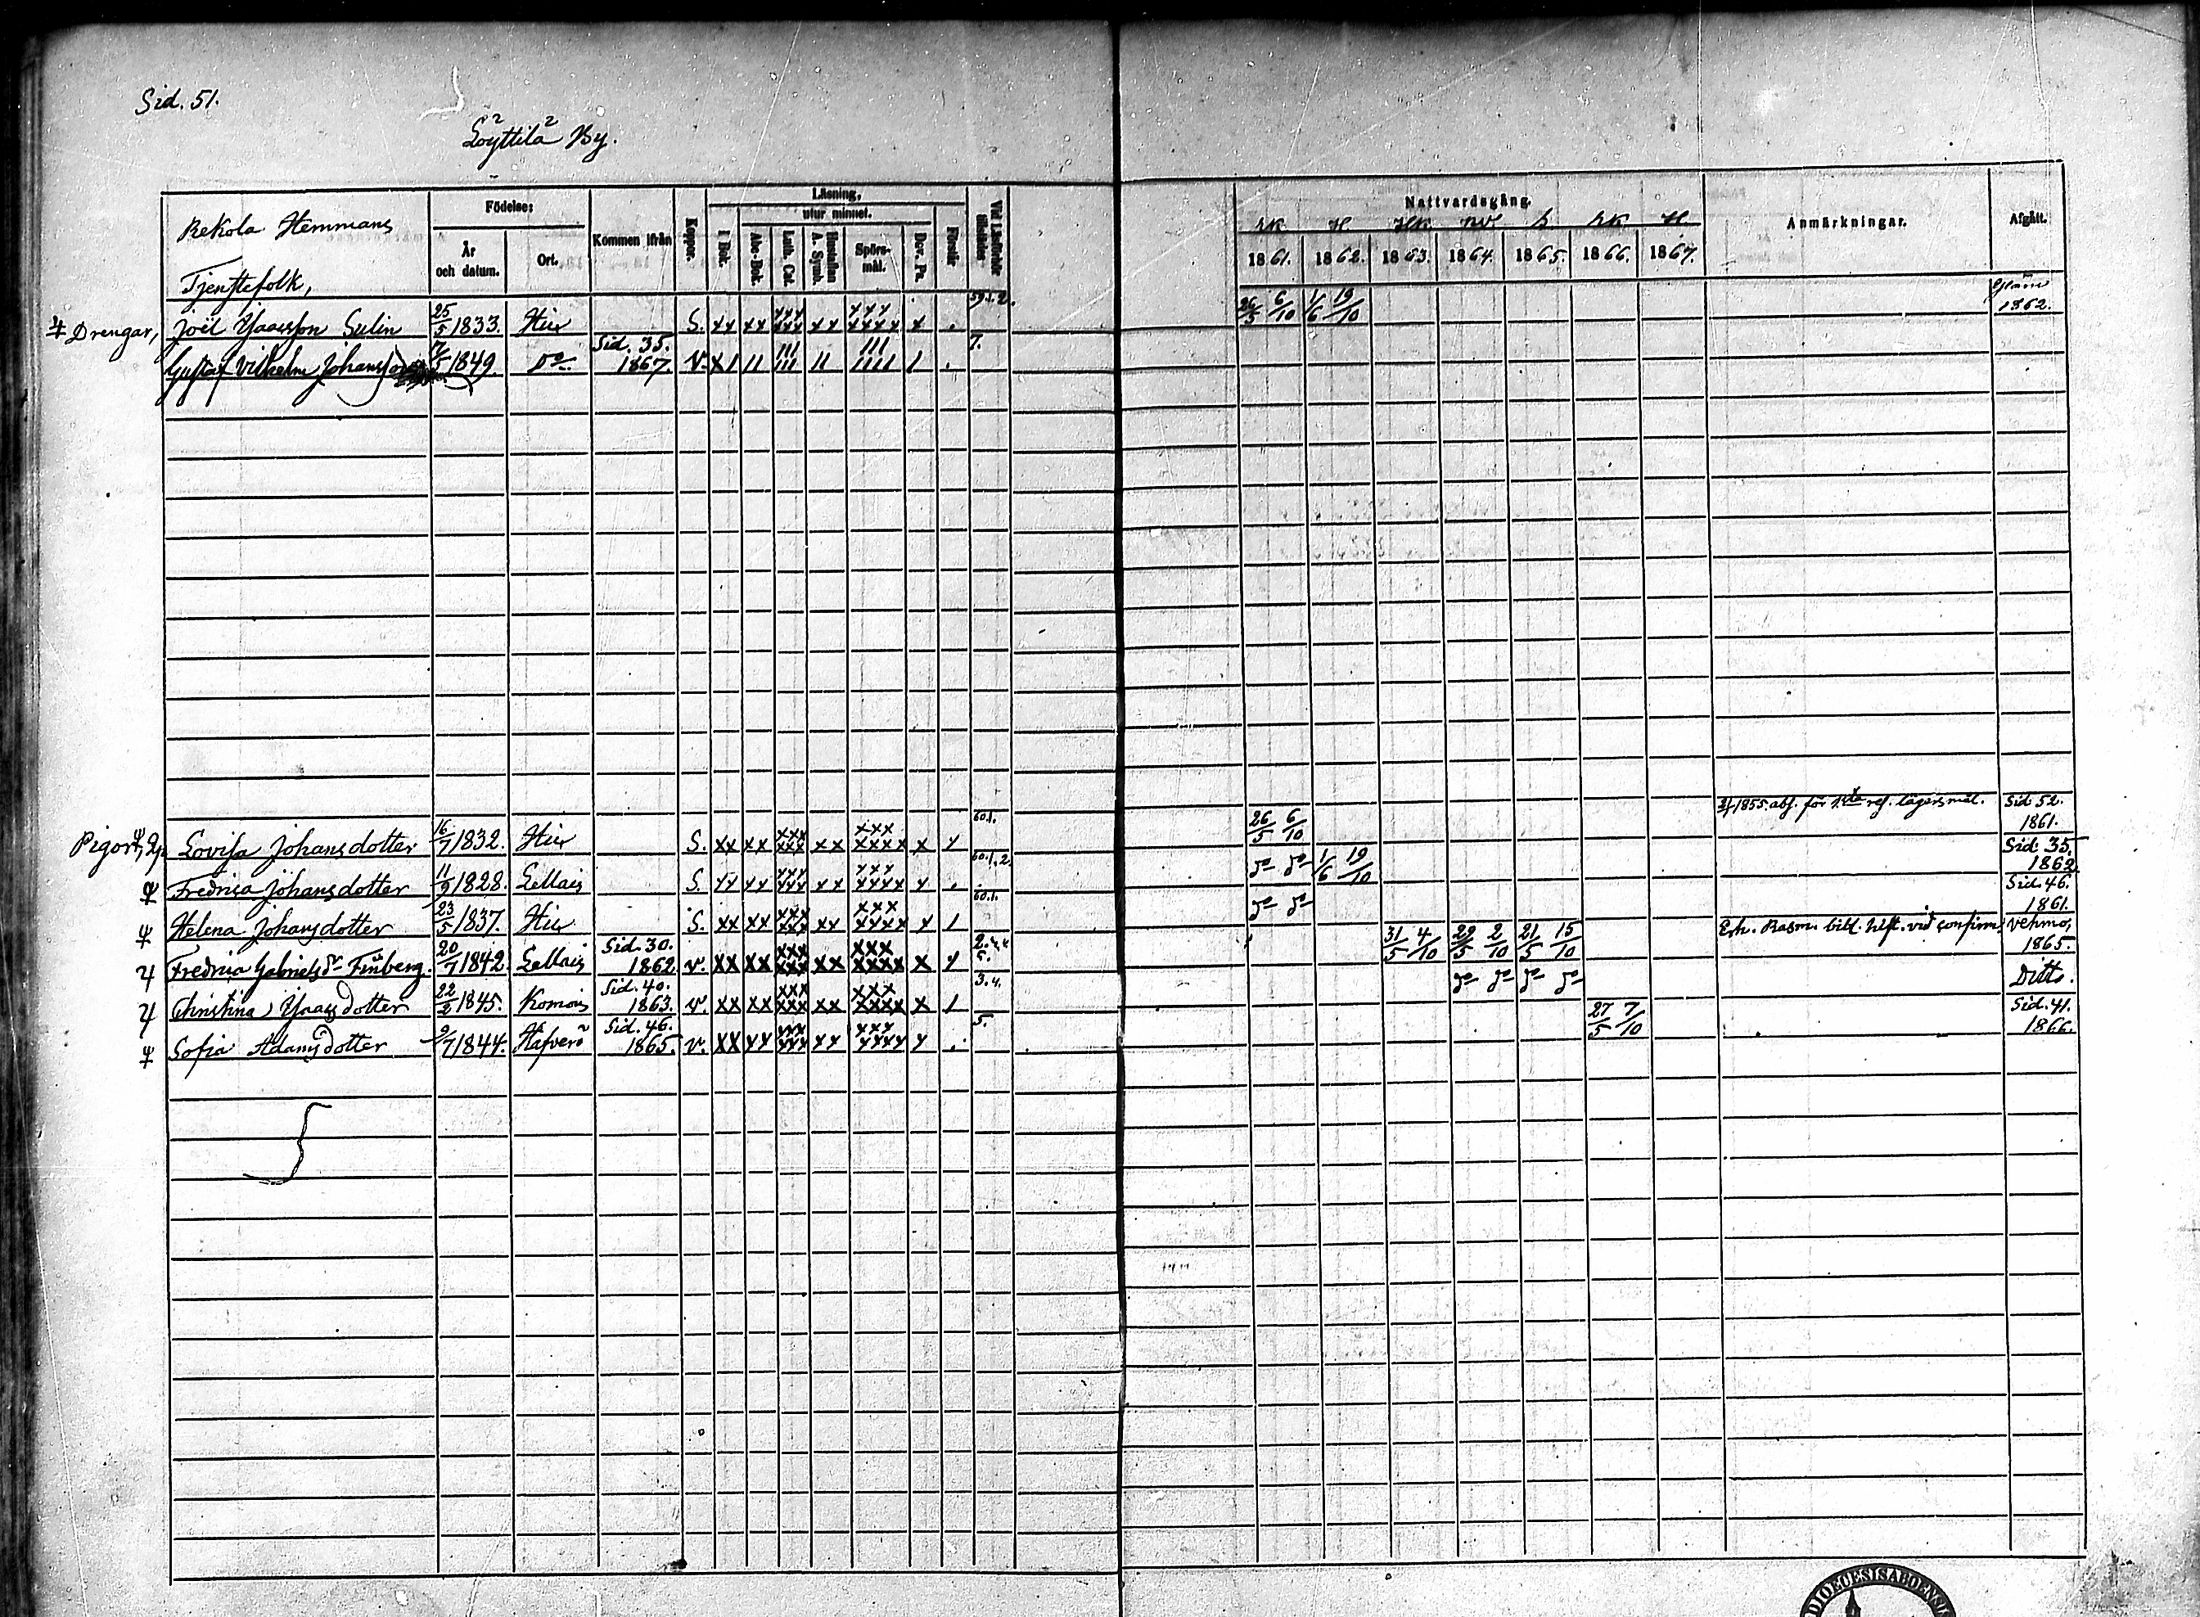 Sid. 51.
Löyttilä By.
Rekola Hemmans
Tjenstefolk,
Födelse:
År och datum.
Ort.
Kommen ifrån
Koppor.
Läsning,
utur minnet.
I Bok.
Abc-Bok.
Luth. Cat.
Hustaflan A. Symb.
Spörs-mål.
Dav. Ps.
Förstår
Vid Läsförhör tillstädes
Nattvardsgång.
1861. 1862. 1863. 1864. 1865. 1866. 1867.
Anmärkningar.
Afgått.
Drengar, Joël Isaksson Sulin 25/5 1833. Hier S. xx xx xxx xxx xx xxx xxxx x . 59.1.2. 26/5 6/10 1/6 19/10 1862.
Gustaf Vilhelm Johansson 1849. Do Sid. 35. 1867. v. x 7.
Pigor, Lovisa Johansdotter 16/7 1832. Hier S. xx xx xxx xxx xx xxx xxxx x 60.1. 26/5 6/10 1855. abs. för lägersmål. Sid 52. 1861.
Fredrica Johansdotter 11/9 1828. Lemais S. xx xx xxx xxx xx xxx xxxx x . 60.1.2. do do 1/6 19/10 Sid. 35. 1862
Helena Johansdotter 23/5 1837. Hier S. xx xx xxx xxx xx xxx xxxx x 60.1. do do Sid. 46. 1861.
Fredrica Gabrielsdr Finberg. 20/7 1842. Lemais Sid. 30. 1862. v. xx xx xxx xxx xx xxx xxxx x 31/5 4/10 29/5 2/10 21/5 15/10 Erh. vid confirm. Vehmo, 1865.
Christina Isaksdotter 22/2 1845. Sid. 40. 1863. v. xx xx xxx xxx xx xxx xxxx x 3.4. do do do do Ditto.
Sofia Adamsdotter 9/7 1844. Hafverö Sid. 46. 1865. v. xx xx xxx xxx xx xxx xxxx x . 5. 27/5 7/10 Sid. 41. 1866.